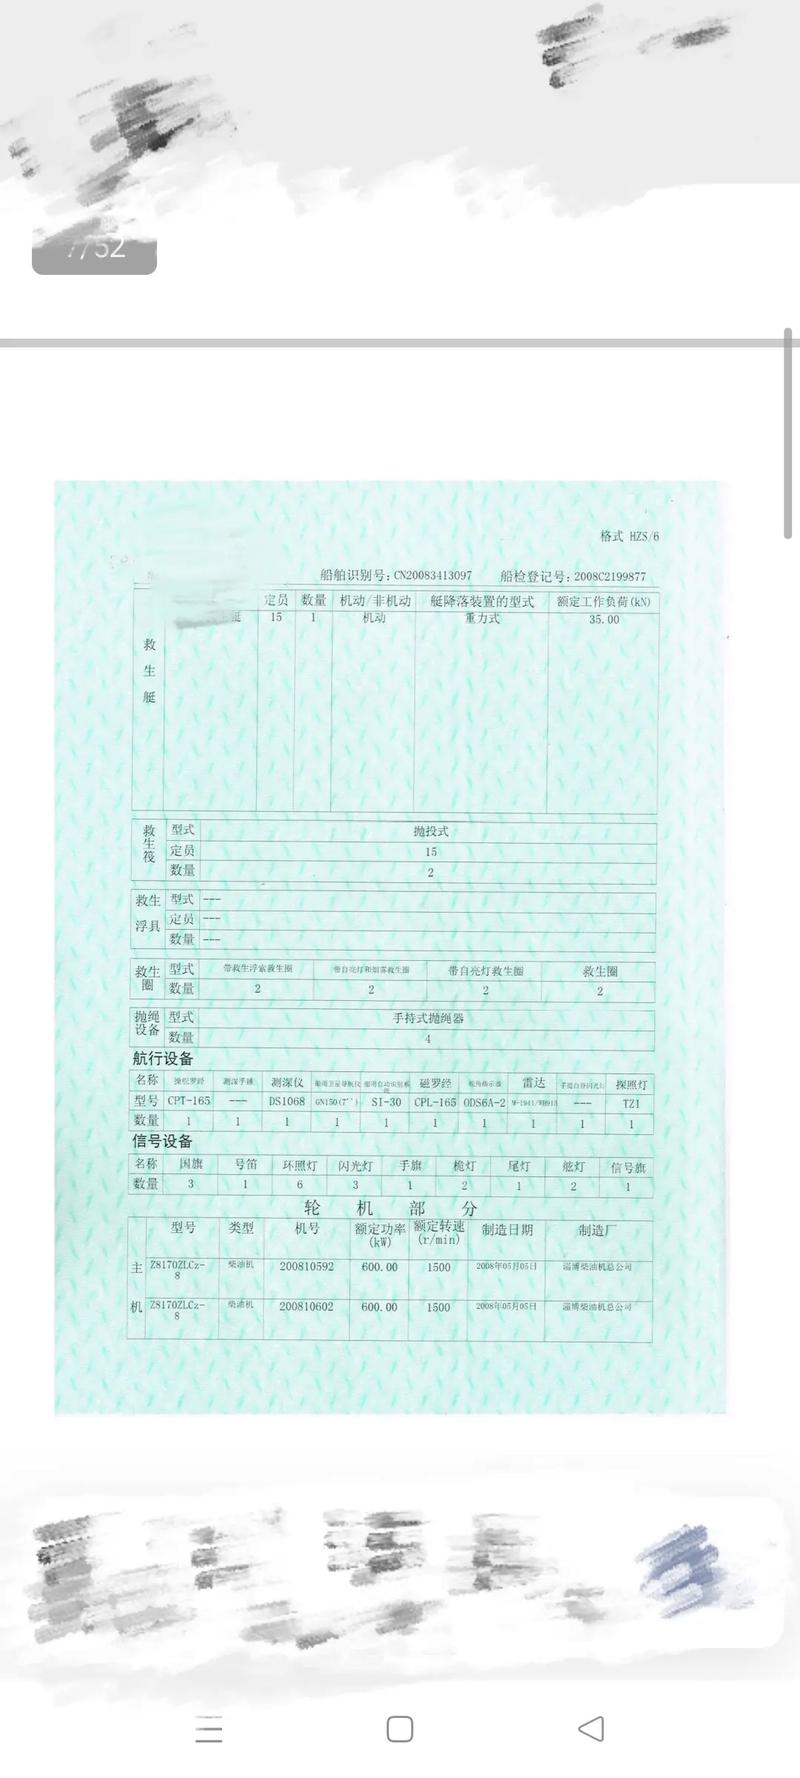 /52
格式 HZS/6
船舶识别号:CN20083413097 船检登记号:2008C2199877
定员 数量 机动/非机动 艇降落装置的型式 额定工作负荷(kN)
救生艇 艇 15 1 机动 重力式 35.00
救生筏 型式 抛投式
定员 15
数量 2
救生浮具 型式 ---
定员 ---
数量 ---
救生圈 型式 带救生浮索救生圈 带自亮灯和烟雾救生圈 带自亮灯救生圈 救生圈
数量 2 2 2 2
抛绳设备 型式 手持式抛绳器
数量 4
航行设备
名称 操舵罗经 测深手锤 测深仪 船用卫星导航仪 船用自动识别系统 磁罗经 舵角指示器 雷达 手提白昼闪光灯 探照灯
型号 CPT-165 --- DS1068 GN150(7'') SI-30 CPL-165 ODS6A-2 --- TZ1
数量 1 1 1 1 1 1 1 1 1 1
信号设备
名称 国旗 号笛 环照灯 闪光灯 手旗 桅灯 尾灯 舷灯 信号旗
数量 3 1 6 3 1 2 1 2 1
轮 机 部 分
型号 类型 机号 额定功率(kW) 额定转速(r/min) 制造日期 制造厂
主机 Z8170ZLCz-8 柴油机 200810592 600.00 1500 2008年05月05日 淄博柴油机总公司
Z8170ZLCz-8 柴油机 200810602 600.00 1500 2008年05月05日 淄博柴油机总公司